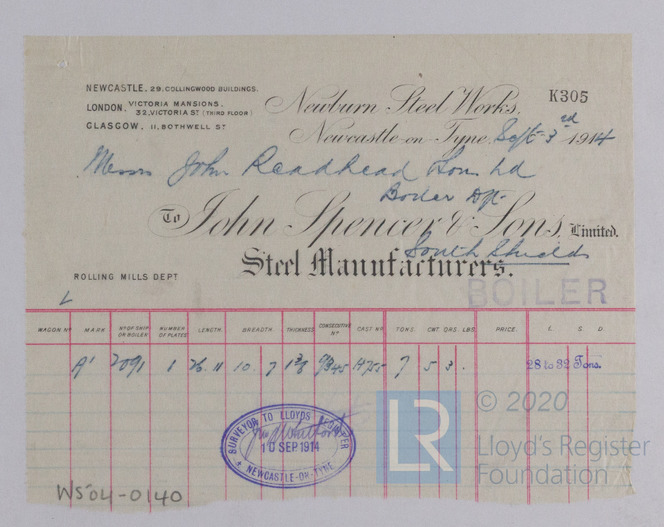 NEWCASTLE. 29. COLLINGWOOD BUILDINGS.
LONDON. VICTORIA MANSIONS.
32, VICTORIA ST (THIRD FLOOR)
GLASGOW. 11, BOTHWELL ST
K305
Newburn Steel Works,
Newcastle-on-Tyne, Sept. 3rd 1914
Messrs John Readhead Sons Ld
Boiler Dpt.
To John Spencer & Sons, Limited.
South Shields
Steel Manufacturers.
ROLLING MILLS DEPT
BOILER
WAGON No MARK No OF SHIP OR BOILER NUMBER OF PLATES LENGTH. BREADTH. THICKNESS CONSECUTIVE No CAST No TONS. CWT. QRS. LBS. PRICE. £. S. D
A1 2091 1 26. 11 10. 7 7 5 3 . 28 to 32 Tons.
SURVEYOR TO LLOYDS REGISTER
10 SEP 1914
NEWCASTLE-ON-TYNE
LR
© 2020
Lloyd's Register
Foundation
WS04-0140